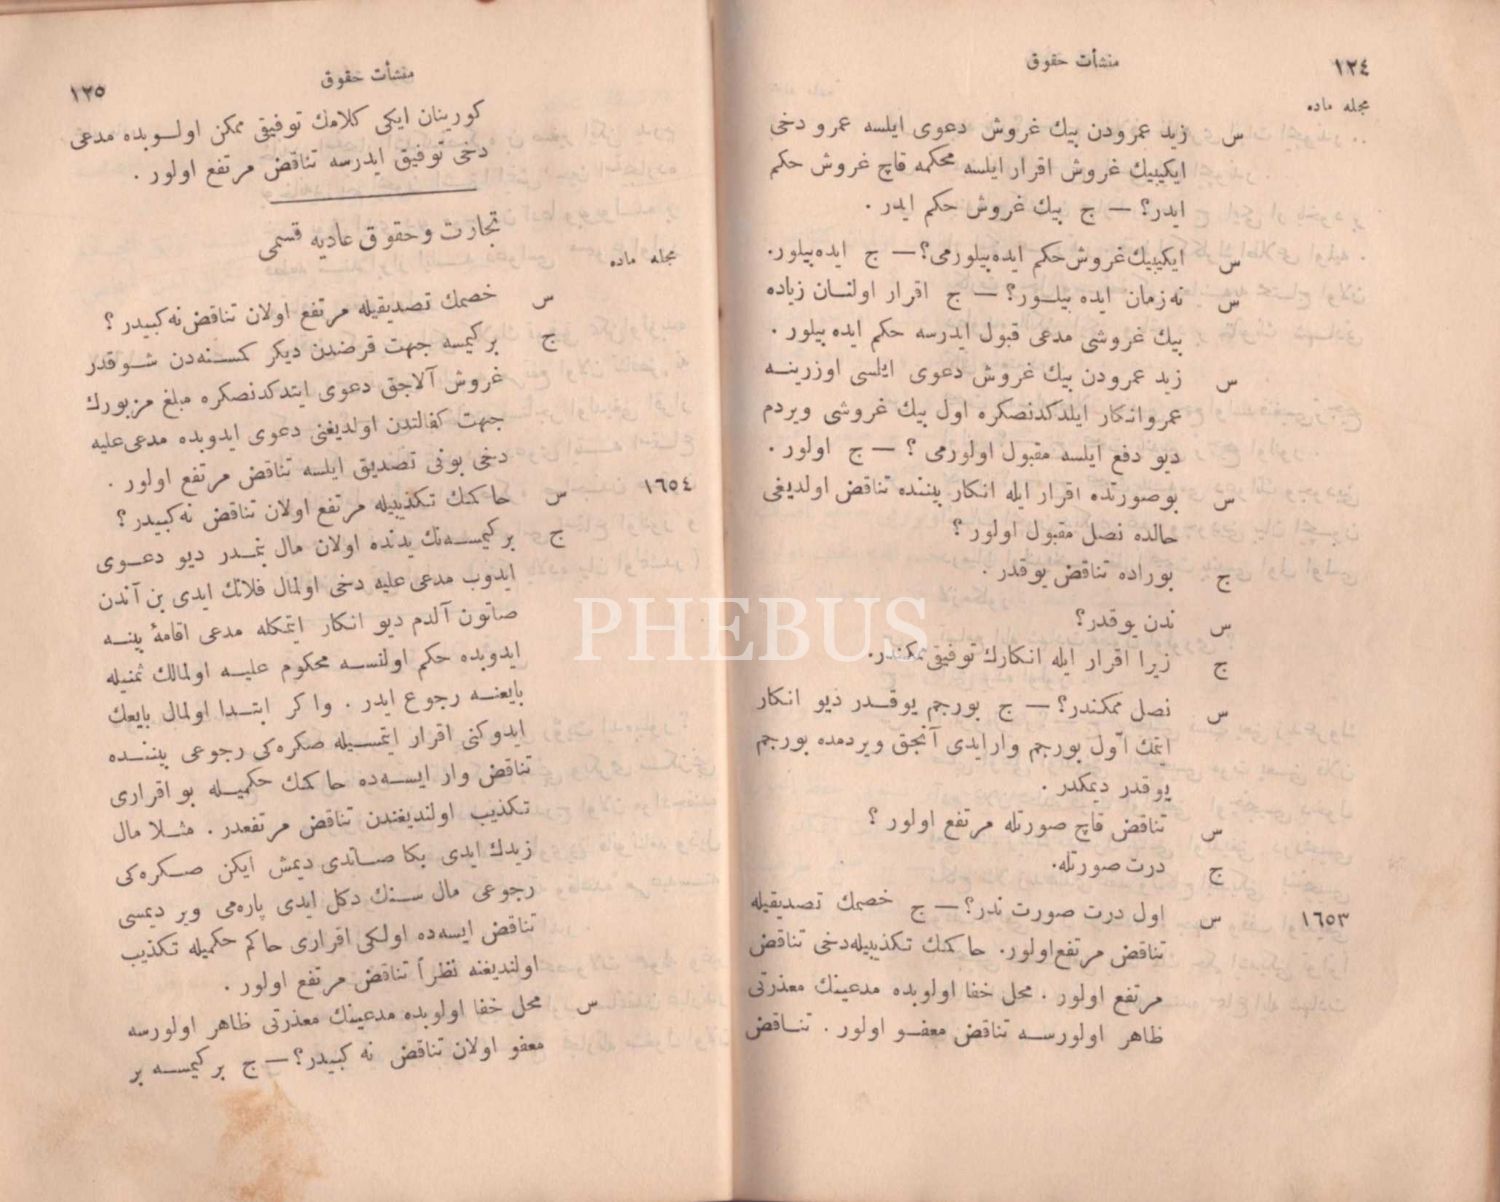 ١٢٤
منشأت حقوق
مجله ماده
س زيد عمرودن بيك غروش دعوى ايلسه عمرو دخى
ايكيبيك غروش اقرار ايلسه محكمه قاچ غروش حكم
ايدر؟ — ج بيك غروش حكم ايدر .
س ايكيبيك غروش حكم ايده بيلورمى؟ — ج ايده بيلور.
س نه زمان ايده بيلور؟ — ج اقرار اولنان زياده
بيك غروشى مدعى قبول ايدرسه حكم ايده بيلور .
س زيد عمرودن بيك غروش دعوى ائلسى اوزرينه
عمرو انكار ايلدكدنصكره اول بيك غروشى ويردم
ديو دفع ايلسه مقبول اولورمى ؟ — ج اولور .
س بوصورتده اقرار ايله انكار بيننده تناقض اولديغى
حالده نصل مقبول اولور ؟
ج بوراده تناقض يوقدر .
س ندن يوقدر؟
ج زيرا اقرار ايله انكارك توفيقى ممكندر.
س نصل ممكندر؟ — ج بورجم يوقدر ديو انكار
ايتمك اوّل بورجم وارايدى آنجق ويردمده بورجم
يوقدر ديمكدر .
س تناقض قاچ صورتله مرتفع اولور ؟
ج درت صورتله.
١٦٥٣ س اول درت صورت ندر؟ — ج خصمك تصديقيله
تناقض مرتفع اولور. حاكمك تكذيبيله دخى تناقض
مرتفع اولور . محل خفا اولوبده مدعينك معذرتى
ظاهر اولورسه تناقض معفو اولور . تناقض
١٢٥
منشأت حقوق
كورينان ايكى كلامك توفيقى ممكن اولوبده مدعى
دخى توفيق ايدرسه تناقض مرتفع اولور .
تجارت وحقوق عاديه قسمى
مجله ماده
س خصمك تصديقيله مرتفع اولان تناقض نه كبيدر ؟
ج بر كيمسه جهت قرضدن ديكر كمسنه دن شوقدر
غروش آلاجق دعوى ايتدكدنصكره مبلغ مزبورك
جهت كفالتدن اولديغنى دعوى ايدوبده مدعى عليه
دخى بونى تصديق ايلسه تناقض مرتفع اولور .
١٦٥٤ س حاكمك تكذيبيله مرتفع اولان تناقض نه كبيدر ؟
ج بر كيمسه نك يدنده اولان مال بنمدر ديو دعوى
ايدوب مدعى عليه دخى اولمال فلانك ايدى بن آندن
صاتون آلدم ديو انكار ايتمكله مدعى اقامهٔ بينه
ايدوبده حكم اولنسه محكوم عليه اولمالك ثمنيله
بايعنه رجوع ايدر . واكر ابتدا اولمال بايعك
ايدوكنى اقرار ايتمسيله صكره كى رجوعى بيننده
تناقض وار ايسه ده حاكمك حكميله بو اقرارى
تكذيب اولنديغندن تناقض مرتفعدر . مثلا مال
زيدك ايدى بكا صاتدى ديمش ايكن صكره كى
رجوعى مال سنك دكل ايدى پاره مى وير ديمسى
تناقض ايسه ده اولكى اقرارى حاكم حكميله تكذيب
اولنديغنه نظراً تناقض مرتفع اولور .
س محل خفا اولوبده مدعينك معذرتى ظاهر اولورسه
معفو اولان تناقض نه كبيدر؟ — ج بر كيمسه بر
PHEBUS